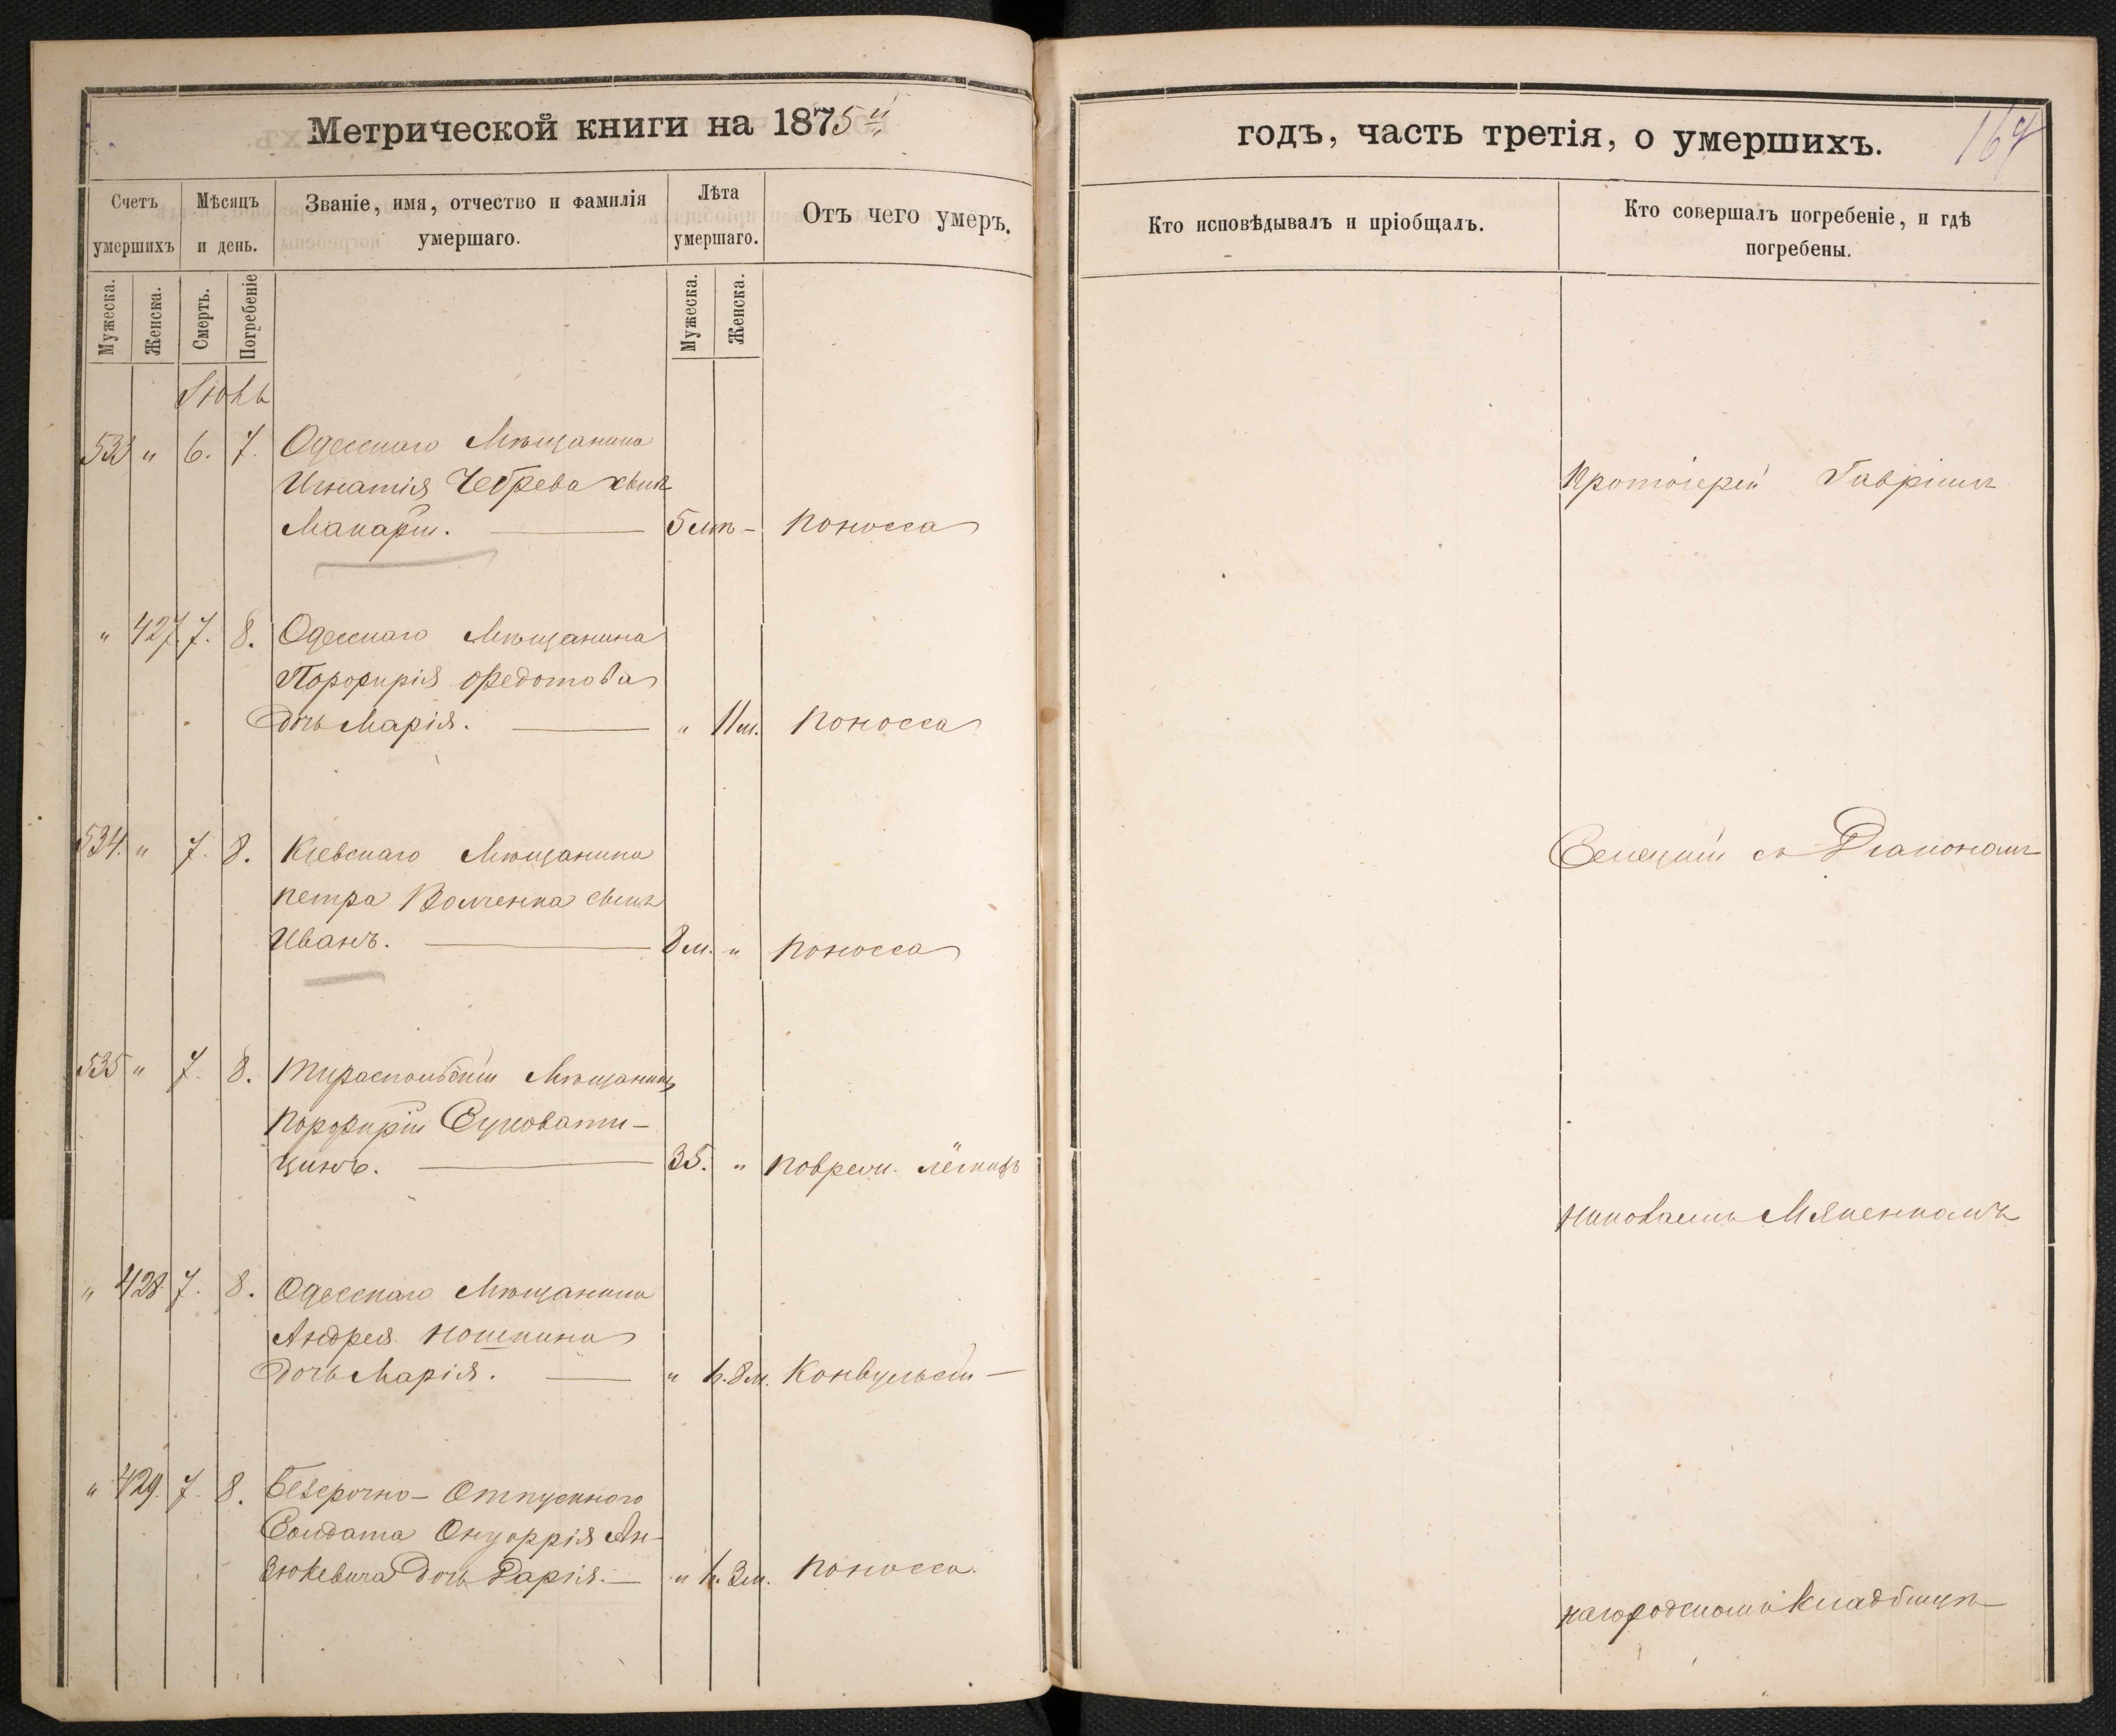 Метрической книги на 1875й
годъ, часть третія, о умершихъ.
Счетъ умершихъ
Мѣсяцъ и день.
Званіе, имя, отчество и фамилія умершаго.
Лѣта умершаго.
Отъ чего умеръ.
Кто исповѣдывалъ и пріобщалъ.
Кто совершалъ погребеніе, и гдѣ погребены.
Мужеска.
Женска.
Смерть.
Погребеніе
Мужеска.
Женска.
533 " 6. 7. Одесскаго Мѣщанина
Игнатія
Макарій. 5 лѣт - поносса
" 427. 7. 8. Одесскаго Мѣщанина
Порфирія Федотова
дочь Марія. " 11 м. поносса
534. " 7. 8. Кіевскаго Мѣщанина
Петра Волченка сынъ
Иванъ. 8 м. " поносса
535 " 7. 8. Тираспольскій Мѣщанинъ
Порфирій Суковати-
цинъ. 35. " поврежд. лёгкихъ
" 428. 7. 8. Одесскаго Мѣщанина
Андрея Кошкина
дочь Марія. " 1г. 8 м. Конвульсіи
" 429. 7. 8. Безсрочно-Отпускного
Солдата Онуфрія Ан-
зюкевича дочь Дарія. " 1г. 3 м. поносса.
Протоіерей Гавріилъ
Селецкій съ Діакономъ
Николаемъ
на городскомъ кладбищѣ